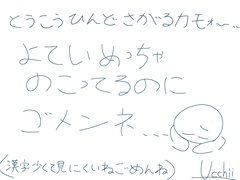 とうこうひんど さがるカモォ～…
よていめっちゃ
のこってるのに
ゴメンネ...
(漢字少くて見にくいねごめんね)
Ucchii